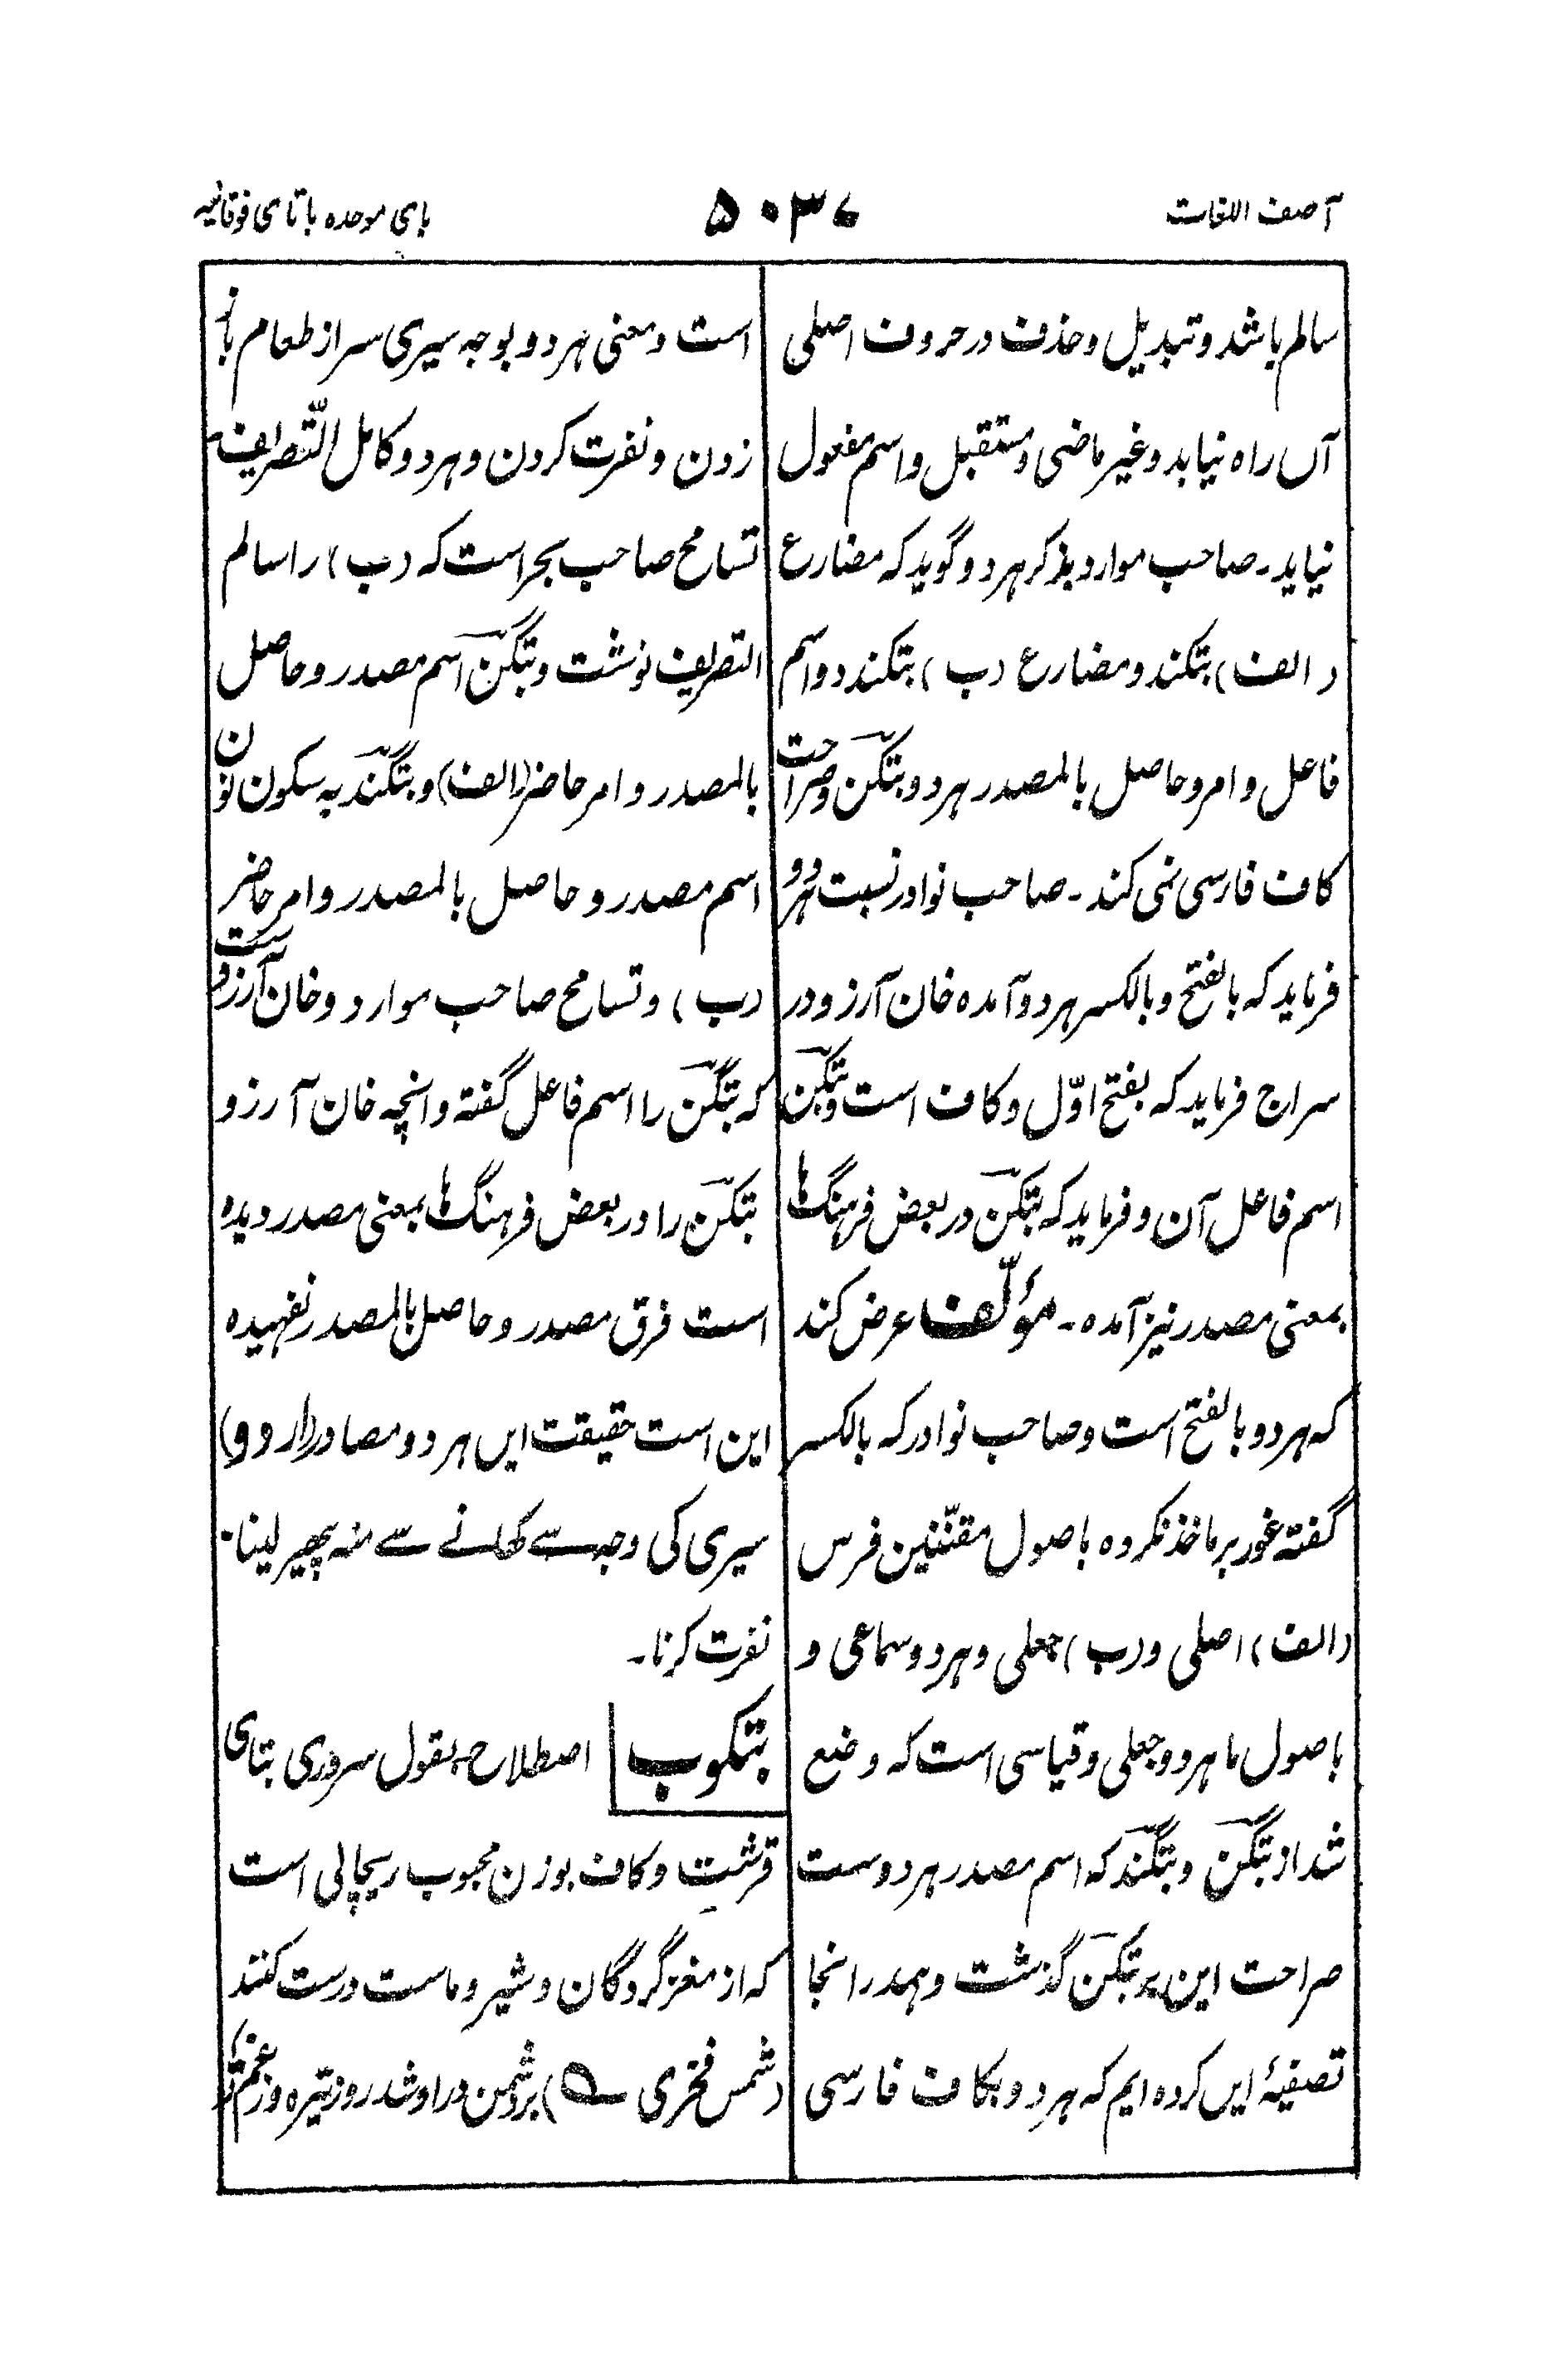 آصف اللغات
۵۰۳۷
بای موحده با تای فوقانیه
سالم باشد و تبدیل و حذف در حروف اصلی
آں راه نیابد و غیر ماضی و مستقبل و اسم مفعول
نیاید ـ صاحب موارد بذکر هر دو گوید که مضارع
(الف) بتکند و مضارع (ب) بتکندد و اسم
فاعل و امر و حاصل بالمصدر هر دو بتکن و صراحت
کاف فارسی نمی کند ـ صاحب نوادر نسبت هر دو
فرماید که بالفتح و بالکسر هر دو آمده خان آرزو در
سراج فرماید که بفتح اوّل و کاف است و بتکن
اسم فاعل آن و فرماید که بتکن در بعض فرهنگ ها
بمعنی مصدر نیز آمده ـ مؤلّف عرض کند
که هر دو بالفتح است و صاحب نوادر که بالکسر
گفته غور بر ماخذ نکرده باصول مقنّنین فرس
(الف) اصلی و (ب) جعلی و هر دو سماعی و
باصول ما هر دو جعلی و قیاسی است که وضع
شد از بتگن و بتگند که اسم مصدر هر دوست
صراحت این بر بتکن گذشت و همدرانجا
تصفیهٔ ایں کرده ایم که هر دو بکاف فارسی
است و معنی هر دو بوجه سیری سر از طعام باز
زدن و نفرت کردن و هر دو کامل التّصریف
تسامح صاحب بحر است که (ب) را سالم
التصریف نوشت و بتگن اسم مصدر و حاصل
بالمصدر و امر حاضر (الف) و بتگند به سکون نون
اسم مصدر و حاصل بالمصدر و امر حاضر
(ب) و تسامح صاحب موارد و خان آرزوست
که بتگن را اسم فاعل گفته و انچه خان آرزو
بتکن را در بعض فرهنگ ها بمعنی مصدر دیده
است فرق مصدر و حاصل بالمصدر نفهمیده
این است حقیقت ایں هر دو مصادر (اردو)
سیری کی وجہ سے کھانے سے منہ پھیر لینا ـ
نفرت کرنا ـ
بتکوب اصطلاح ـ بقول سروری بتای
قرشت و کاف بوزن محبوب ریچالی است
که از مغز گردگان و شیر و ماست درست کنند
(شمس فخری ے) بر دشمن در او شد روز تیره وز غم